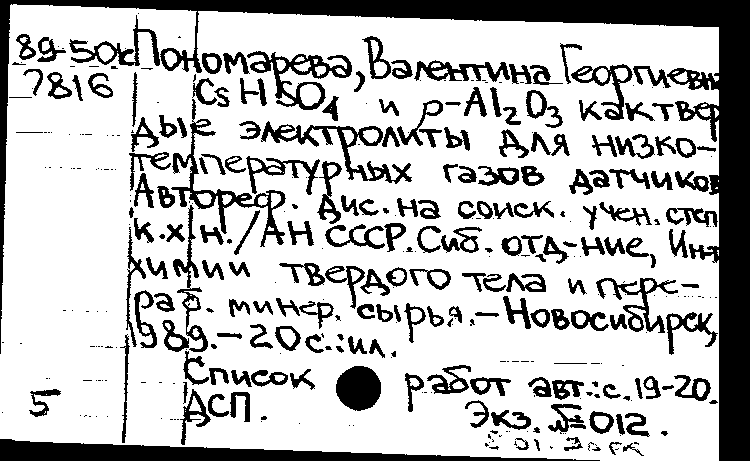 89-50к Пономарева, Валентина Георгиевна
7816 CsHSO4 и ρ-Al2O3 как твер
дые электролиты для низко-
температурных газов датчиков
Автореф. дис. на соиск. учен. степ
к.х.н./АН СССР. Сиб. отд-ние, Ин-т
химии твердого тела и пере-
раб. минер. сырья.–Новосибирск,
1989.–20с.:ил.
Список работ авт.:с.19-20.
5 ДСП. Экз. №012.